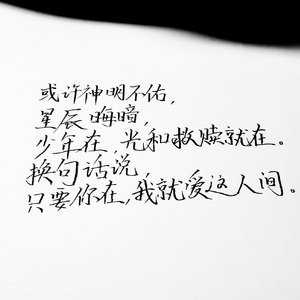 或许神明不佑，
星辰晦暗，
少年在，光和救赎就在。
换句话说，
只要你在，我就爱这人间。